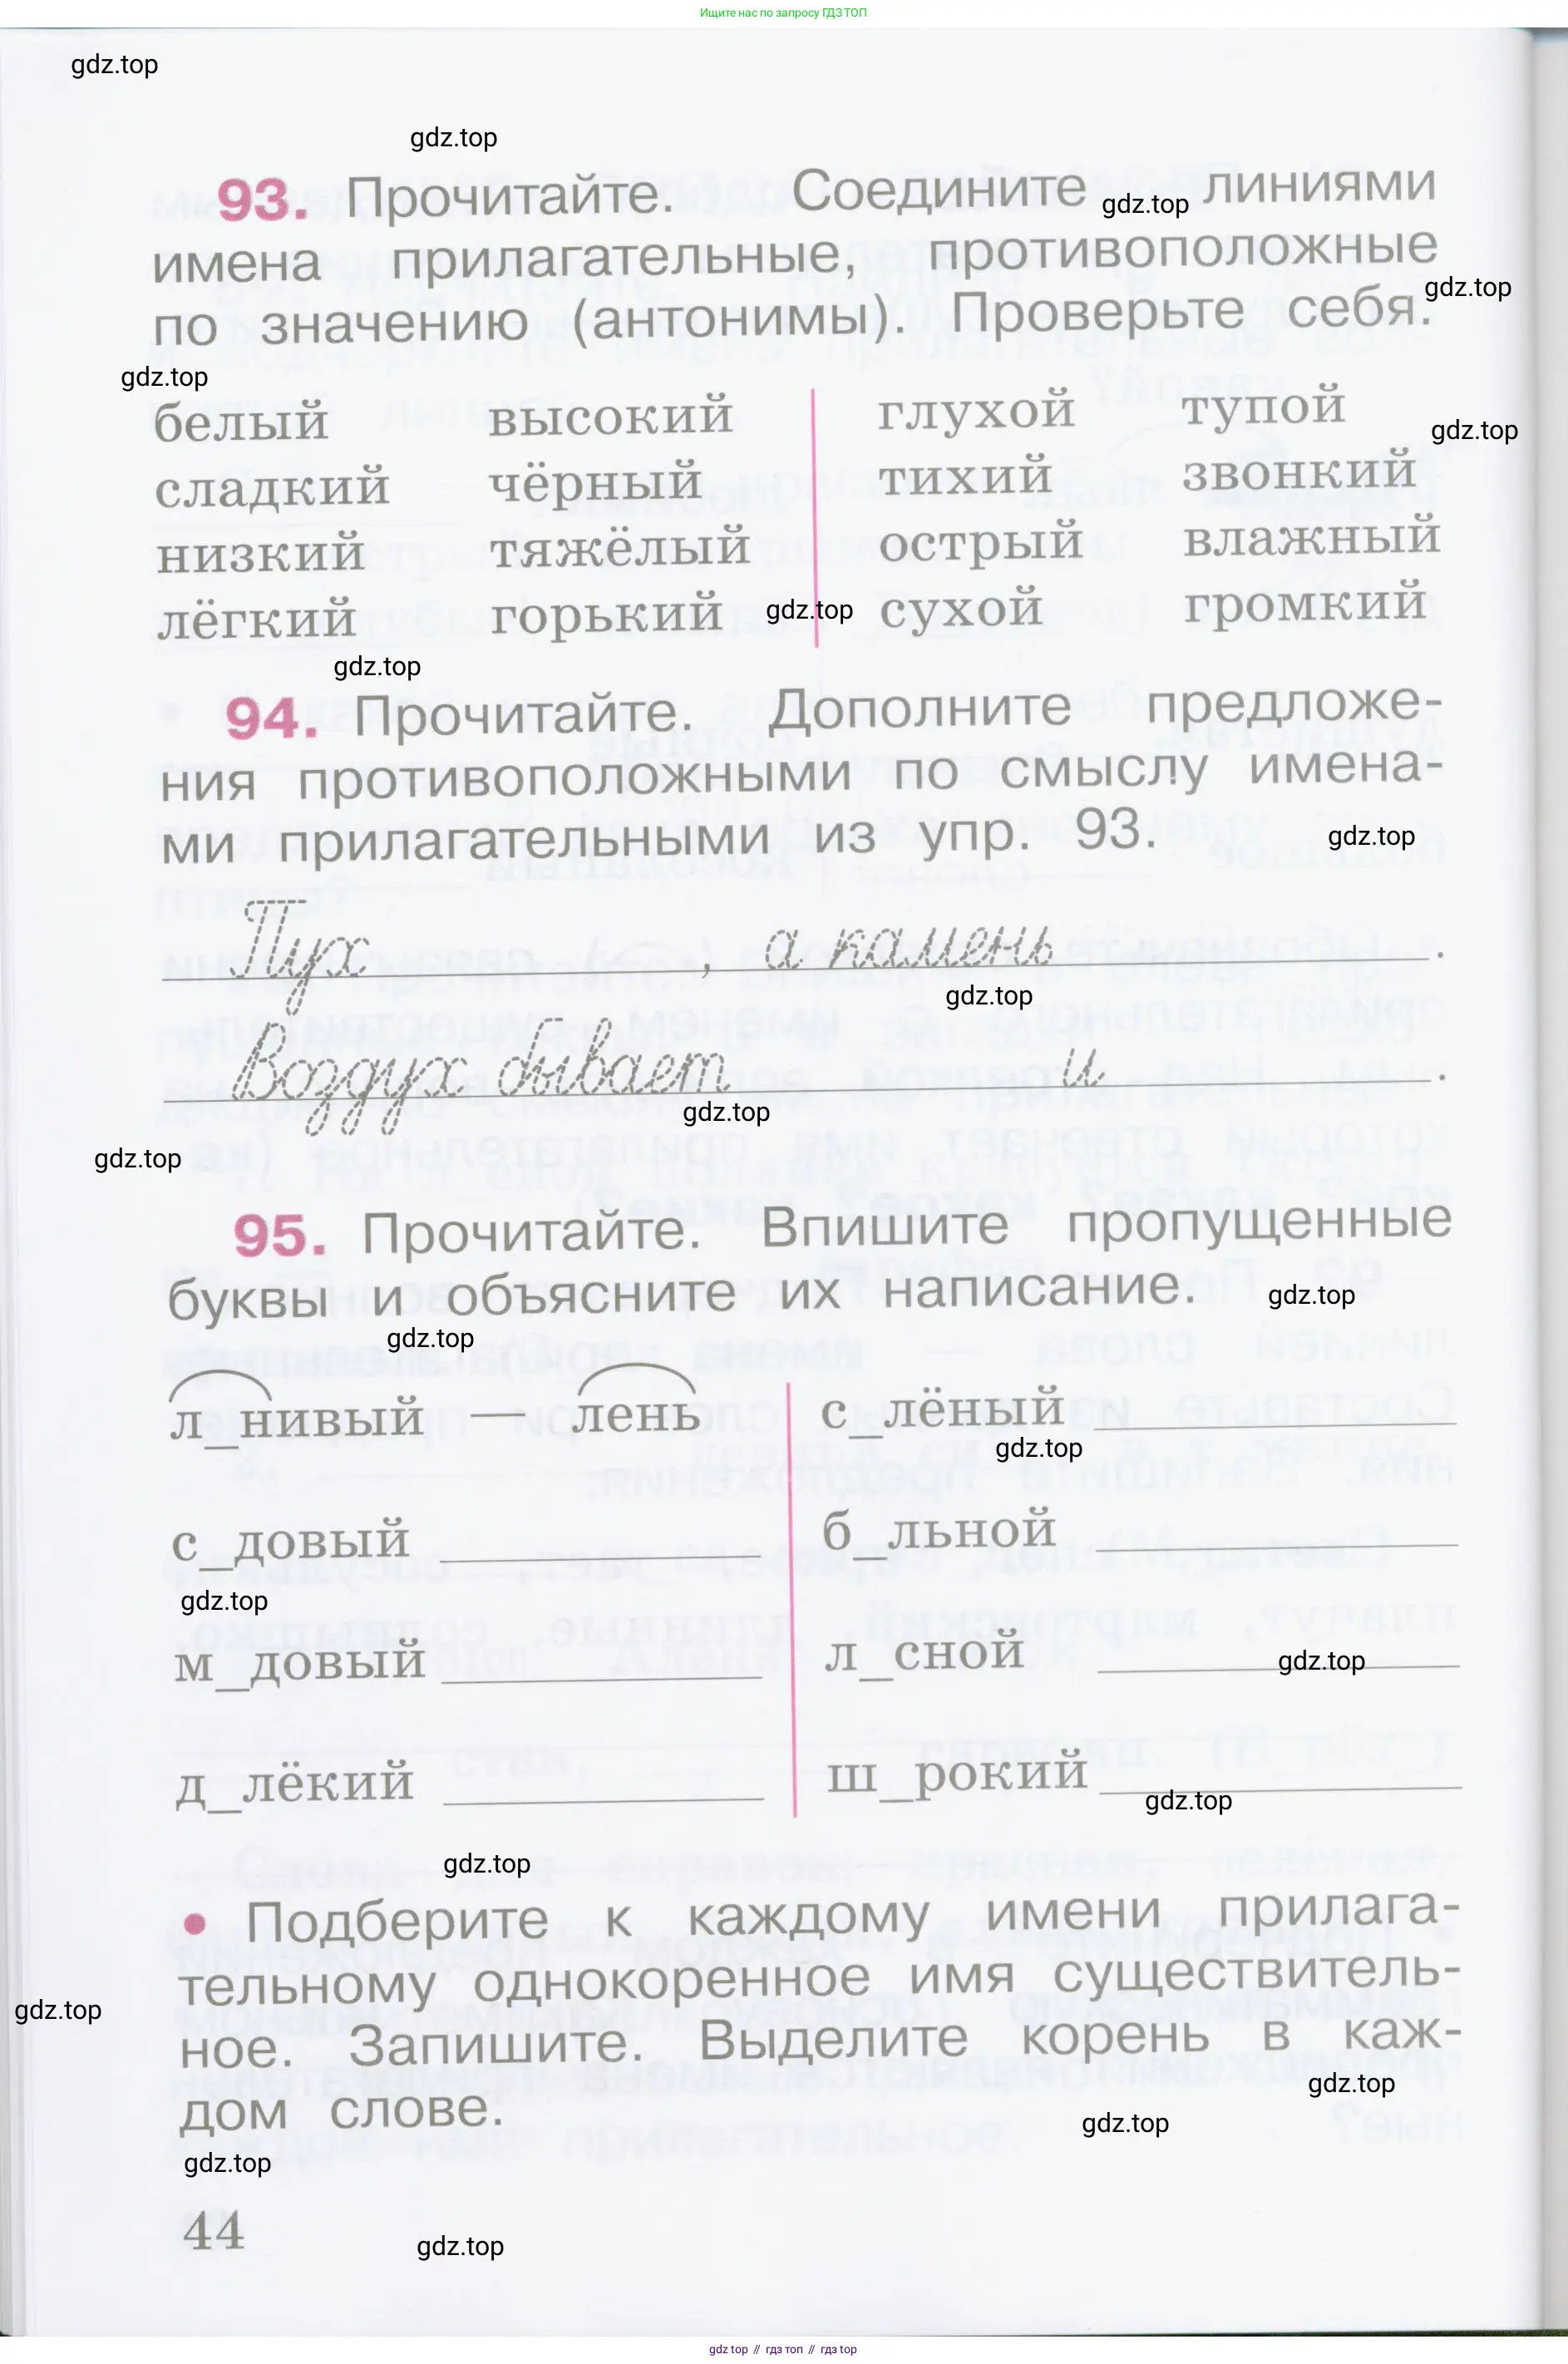 Ищите нас по запросу ГДЗ ТОП
gdz.top
gdz.top
93. Прочитайте. Соедините линиями
gdz.top
имена прилагательные, противоположные
gdz.top
по значению (антонимы). Проверьте себя.
gdz.top
белый высокий глухой тупой
gdz.top
сладкий чёрный тихий звонкий
низкий тяжёлый острый влажный
лёгкий горький сухой громкий
gdz.top
gdz.top
94. Прочитайте. Дополните предложе-
ния противоположными по смыслу имена-
ми прилагательными из упр. 93.
gdz.top
Пух ____, а камень ____.
gdz.top
Воздух бывает ____ и ____.
gdz.top
gdz.top
95. Прочитайте. Впишите пропущенные
буквы и объясните их написание.
gdz.top
gdz.top
л_нивый — лень с_лёный ____
gdz.top
с_довый ____ б_льной ____
gdz.top
м_довый ____ л_сной ____
gdz.top
д_лёкий ____ ш_рокий ____
gdz.top
gdz.top
• Подберите к каждому имени прилага-
тельному однокоренное имя существитель-
gdz.top
ное. Запишите. Выделите корень в каж-
gdz.top
дом слове.
gdz.top
gdz.top
44
gdz.top
gdz top // гдз топ // гдз top